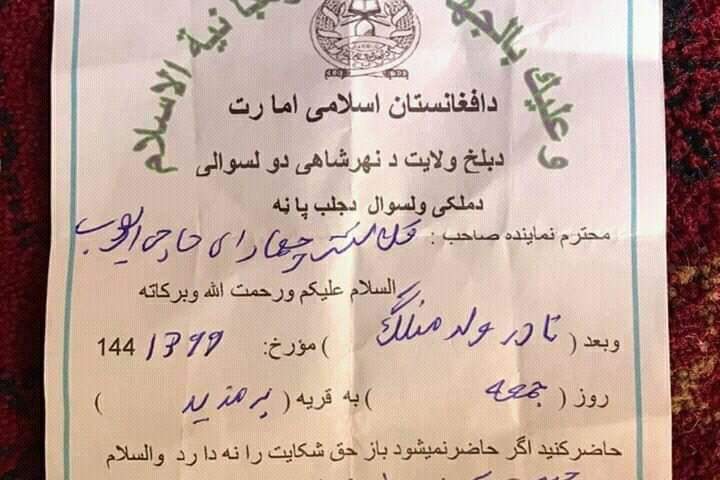 وعليك بالجهاد فإنه رهبانية الاسلام
دافغانستان اسلامی امارت
دبلخ ولایت د نهرشاهی دولسوالی
دملکی ولسوال دجلب پاڼه
محترم نماینده صاحب : حاجی ایوب
السلام علیکم ورحمت الله وبرکاته
وبعد ( نادر ولد ملنگ ) مؤرخ: 1399 144
روز ( جمعه ) به قریه ( )
حاضرکنید اگر حاضرنمیشود باز حق شکایت را نه دارد والسلام